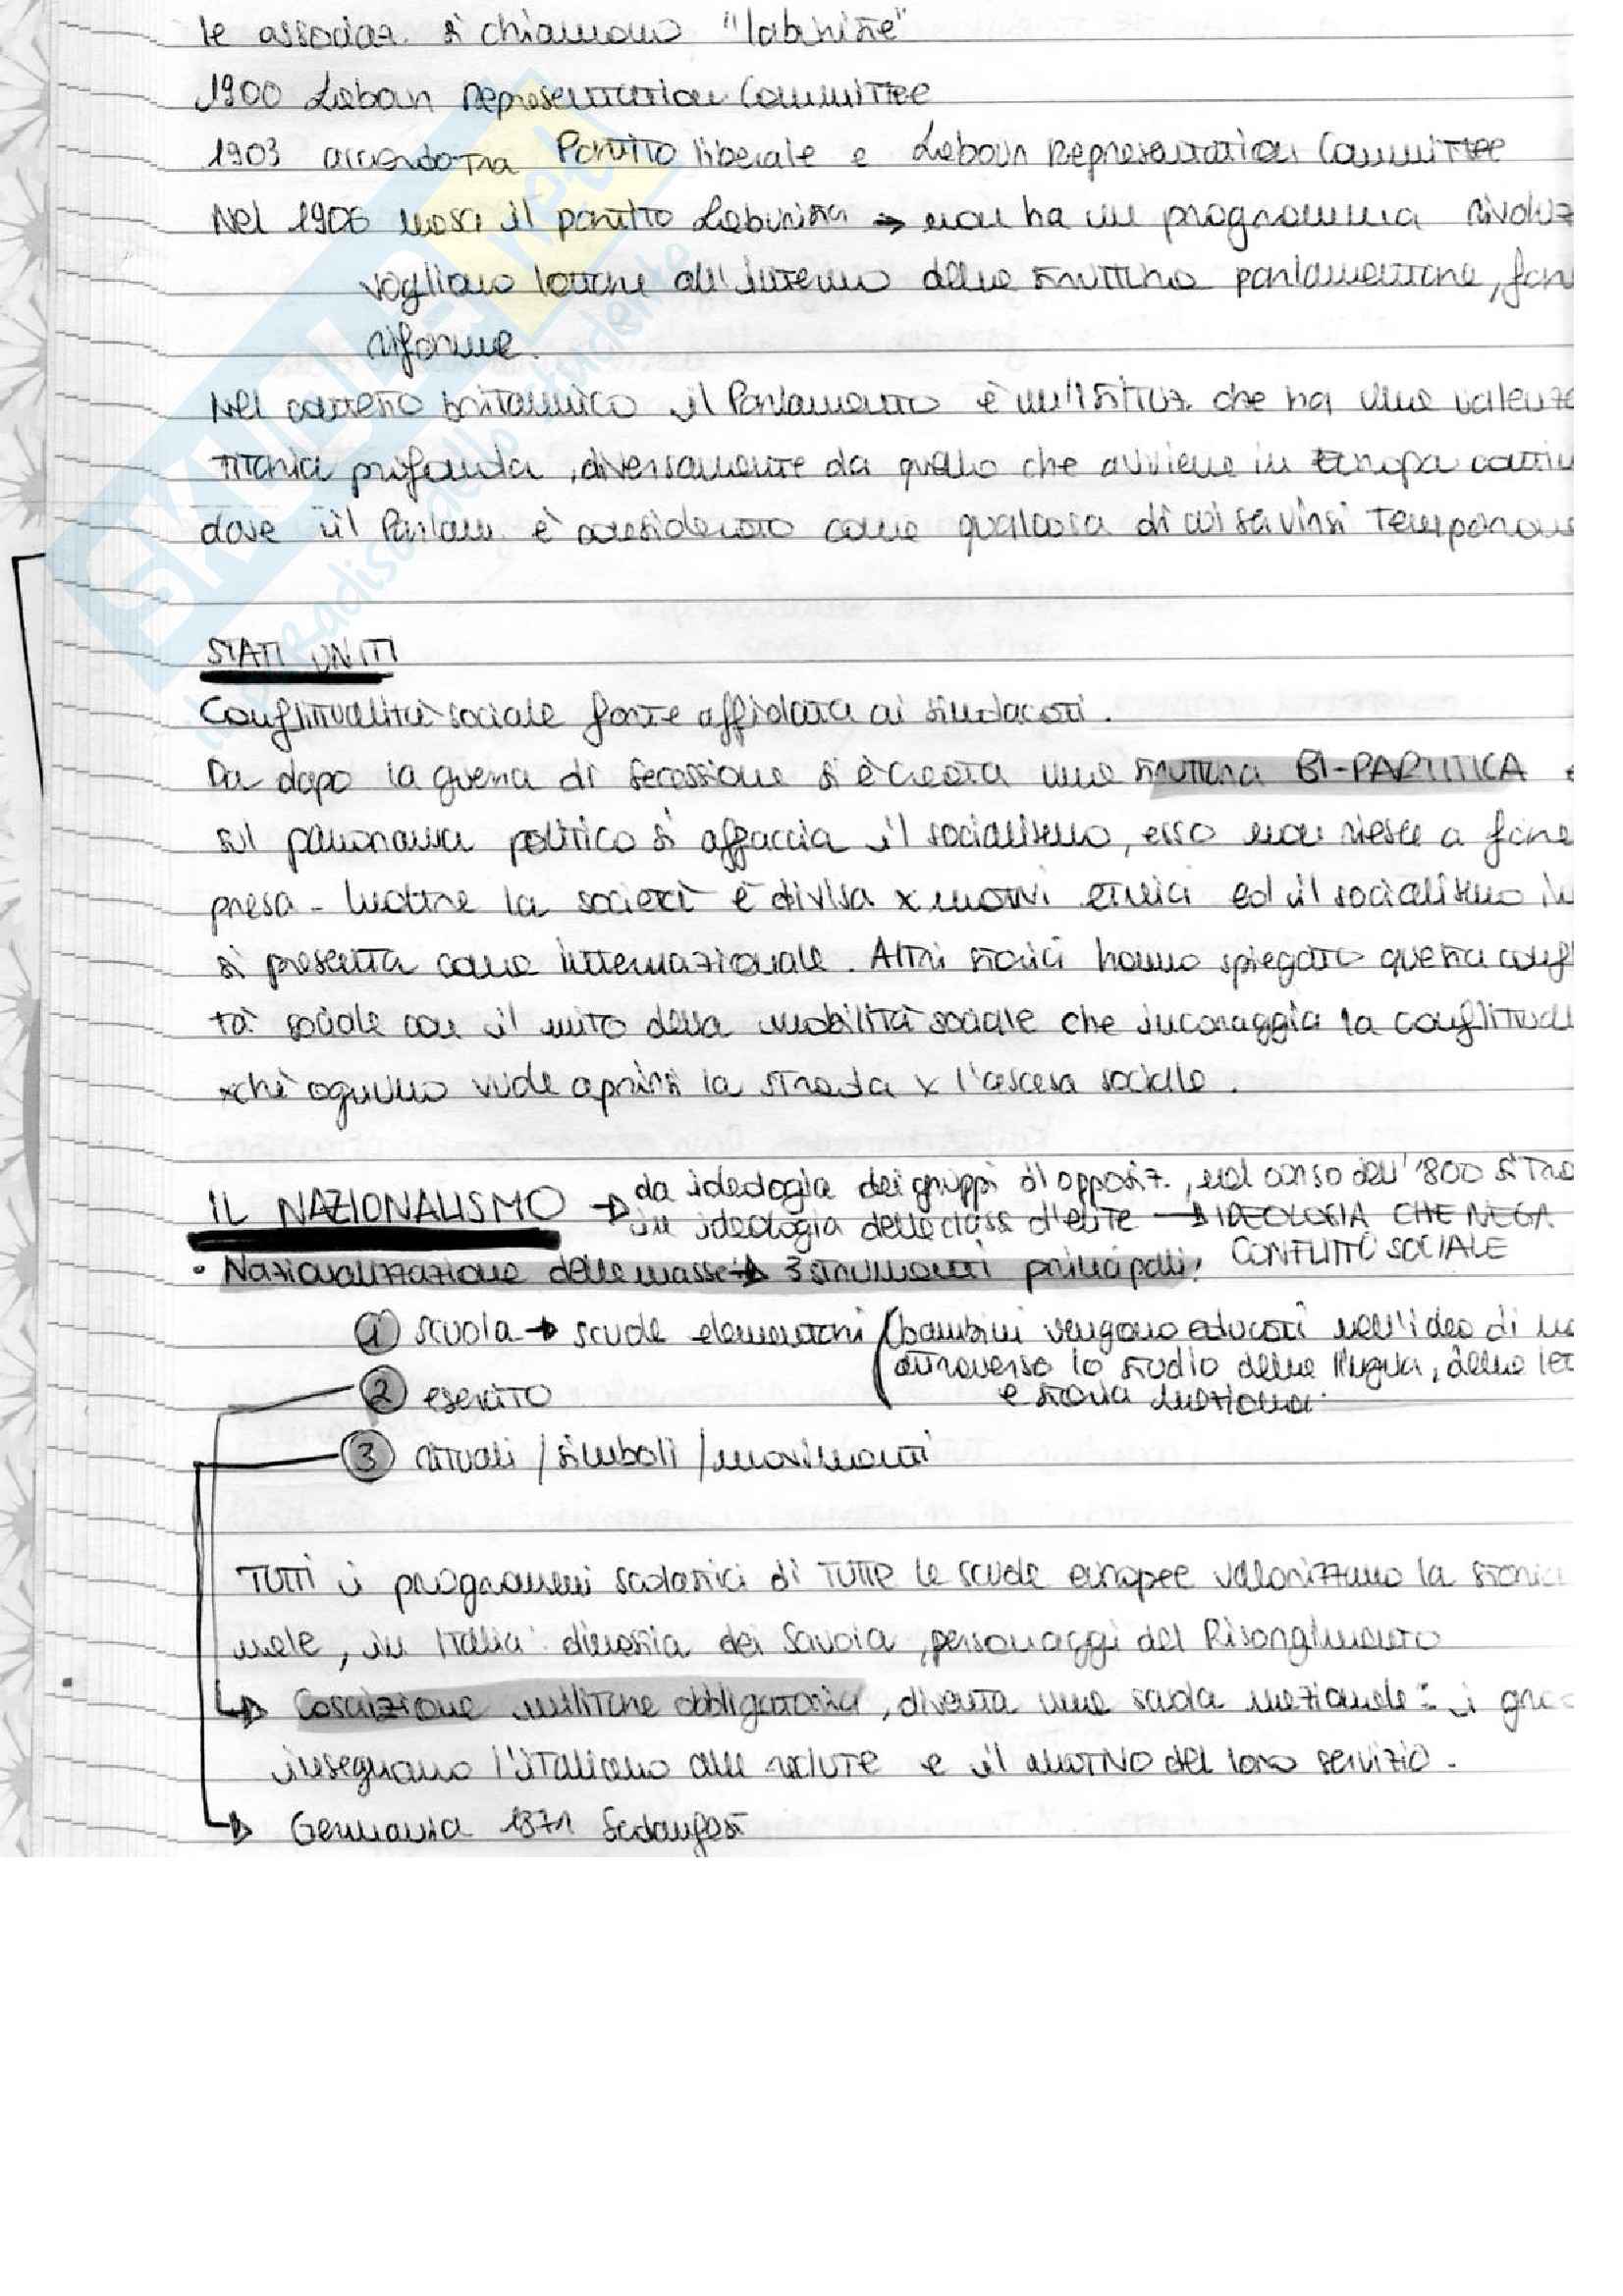 le associaz. si chiamano "labiriste"
1900 Labour Representation Committee
1903 accordo tra Partito liberale e Labour Representation Committee
Nel 1906 nasce il partito Laburista → non ha un programma rivoluz
vogliono lottare all'interno della struttura parlamentare, fare
riforme.
Nel contesto britannico il Parlamento è un'istituz. che ha una valenza
titaria profonda, diversamente da quello che avviene in Europa contin
dove il Parlam. è considerato come qualcosa di cui servirsi temporane
STATI UNITI
Conflittualità sociale forte affidata ai sindacati.
Da dopo la guerra di secessione si è creata una struttura BI-PARTITICA e
sul panorama politico si affaccia il socialismo, esso non riesce a fare
presa - Inoltre la società è divisa x motivi etnici ed il socialismo in
si presenta come internazionale. Altri storici hanno spiegato questa confl
tà sociale con il mito della mobilità sociale che incoraggia la conflittual
xchè ognuno vede aprirsi la strada x l'ascesa sociale.
IL NAZIONALISMO → da ideologia dei gruppi di opposiz., nel corso dell'800 si tra
in ideologia delle class. d'elite → IDEOLOGIA CHE NEGA
CONFLITTO SOCIALE
• Nazionalizzazione delle masse → 3 strumenti principali:
1 scuola → scuole elementari (bambini vengono educati nell'idea di na
attraverso lo studio della lingua, della let
2 esercito
e storia naziona.
3 rituali / simboli / movimenti
Tutti i programmi scolastici di tutte le scuole europee valorizzano la storia
nale, in Italia: dinastia dei Savoia, personaggi del Risorgimento
→ Coscrizione militare obbligatoria, diventa una scuola nazionale: i gra
insegnano l'italiano alle reclute e il motivo del loro servizio.
→ Germania 1871 Sedanfest
SKUOLA.net
il paradiso dello studente